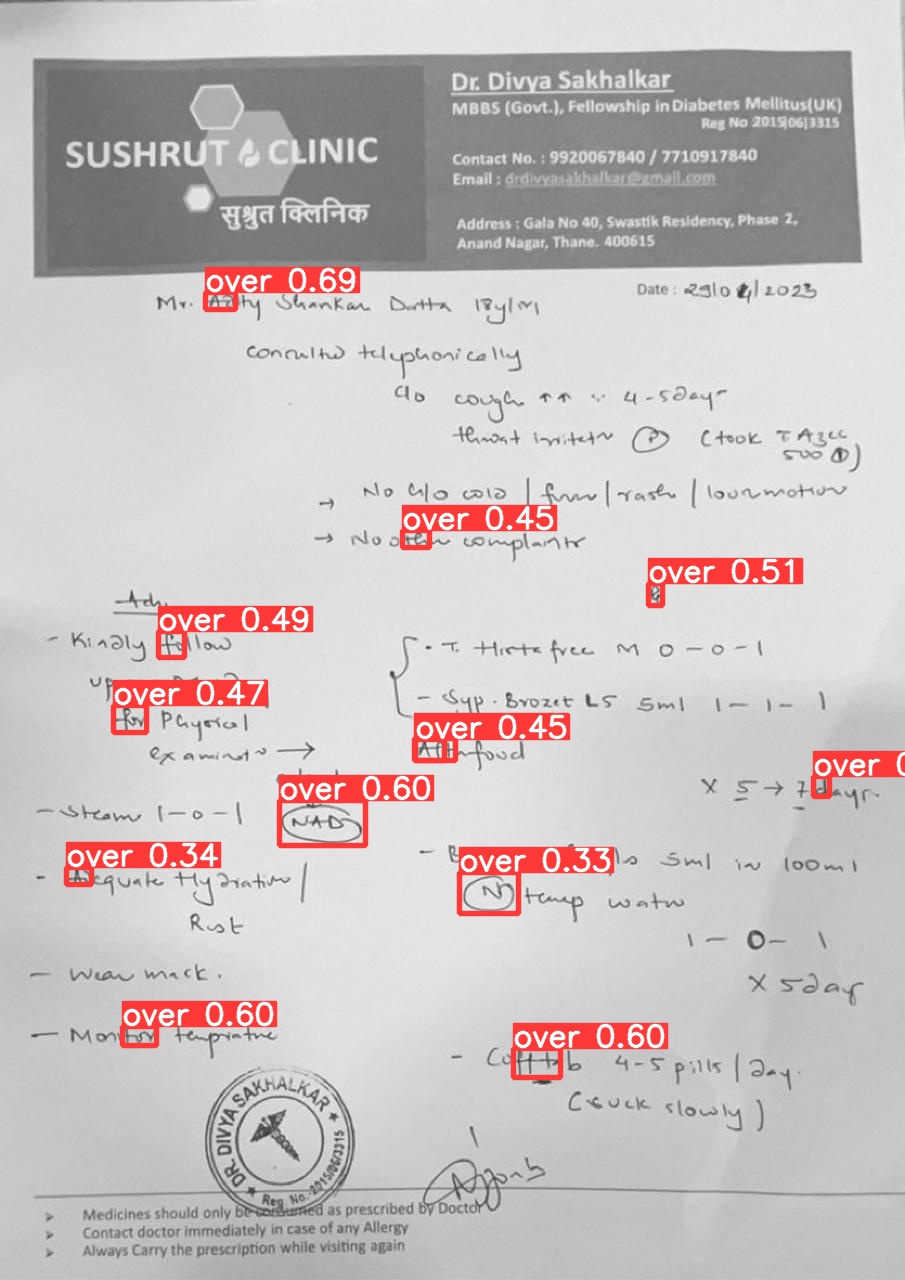 SUSHRUT CLINIC
सुश्रुत क्लिनिक
Dr. Divya Sakhalkar
MBBS (Govt.), Fellowship in Diabetes Mellitus(UK)
Reg No 2015|06|3315
Contact No. : 9920067840 / 7710917840
Email : drdivyasakhalkar@gmail.com
Address : Gala No 40, Swastik Residency, Phase 2,
Anand Nagar, Thane. 400615
over 0.69
Date : 29/04/2023
Mr. Shankar Dutta 18y/M
consulted telephonically
c/o cough ↑↑ 4-5day
throat irritatn (took T Azee
500 ①)
→ No c/o cold / fever / rash / loosemotion
over 0.45
→ No other complaints
over 0.51
Adv.
over 0.49
- Kindly follow
up
{ - T. Histafree M 0-0-1
over 0.47
- Syp. Brozet LS 5ml 1-1-1
for Physical
over 0.45
examinatn →
After food
x 5 → 7 days.
over 0.60
- Steam 1-0-1
NAD
over 0.34
over 0.33
- Adequate Hydration /
5ml in 100ml
Rest
N temp water
1-0-1
- Wear mask.
x 5day
over 0.60
- Monitor temprature
over 0.60
- Cofftab 4-5 pills / day.
(suck slowly)
DR. DIVYA SAKHALKAR
Reg. No.-2015/06/3315
➤ Medicines should only be consumed as prescribed by Doctor
➤ Contact doctor immediately in case of any Allergy
➤ Always Carry the prescription while visiting again